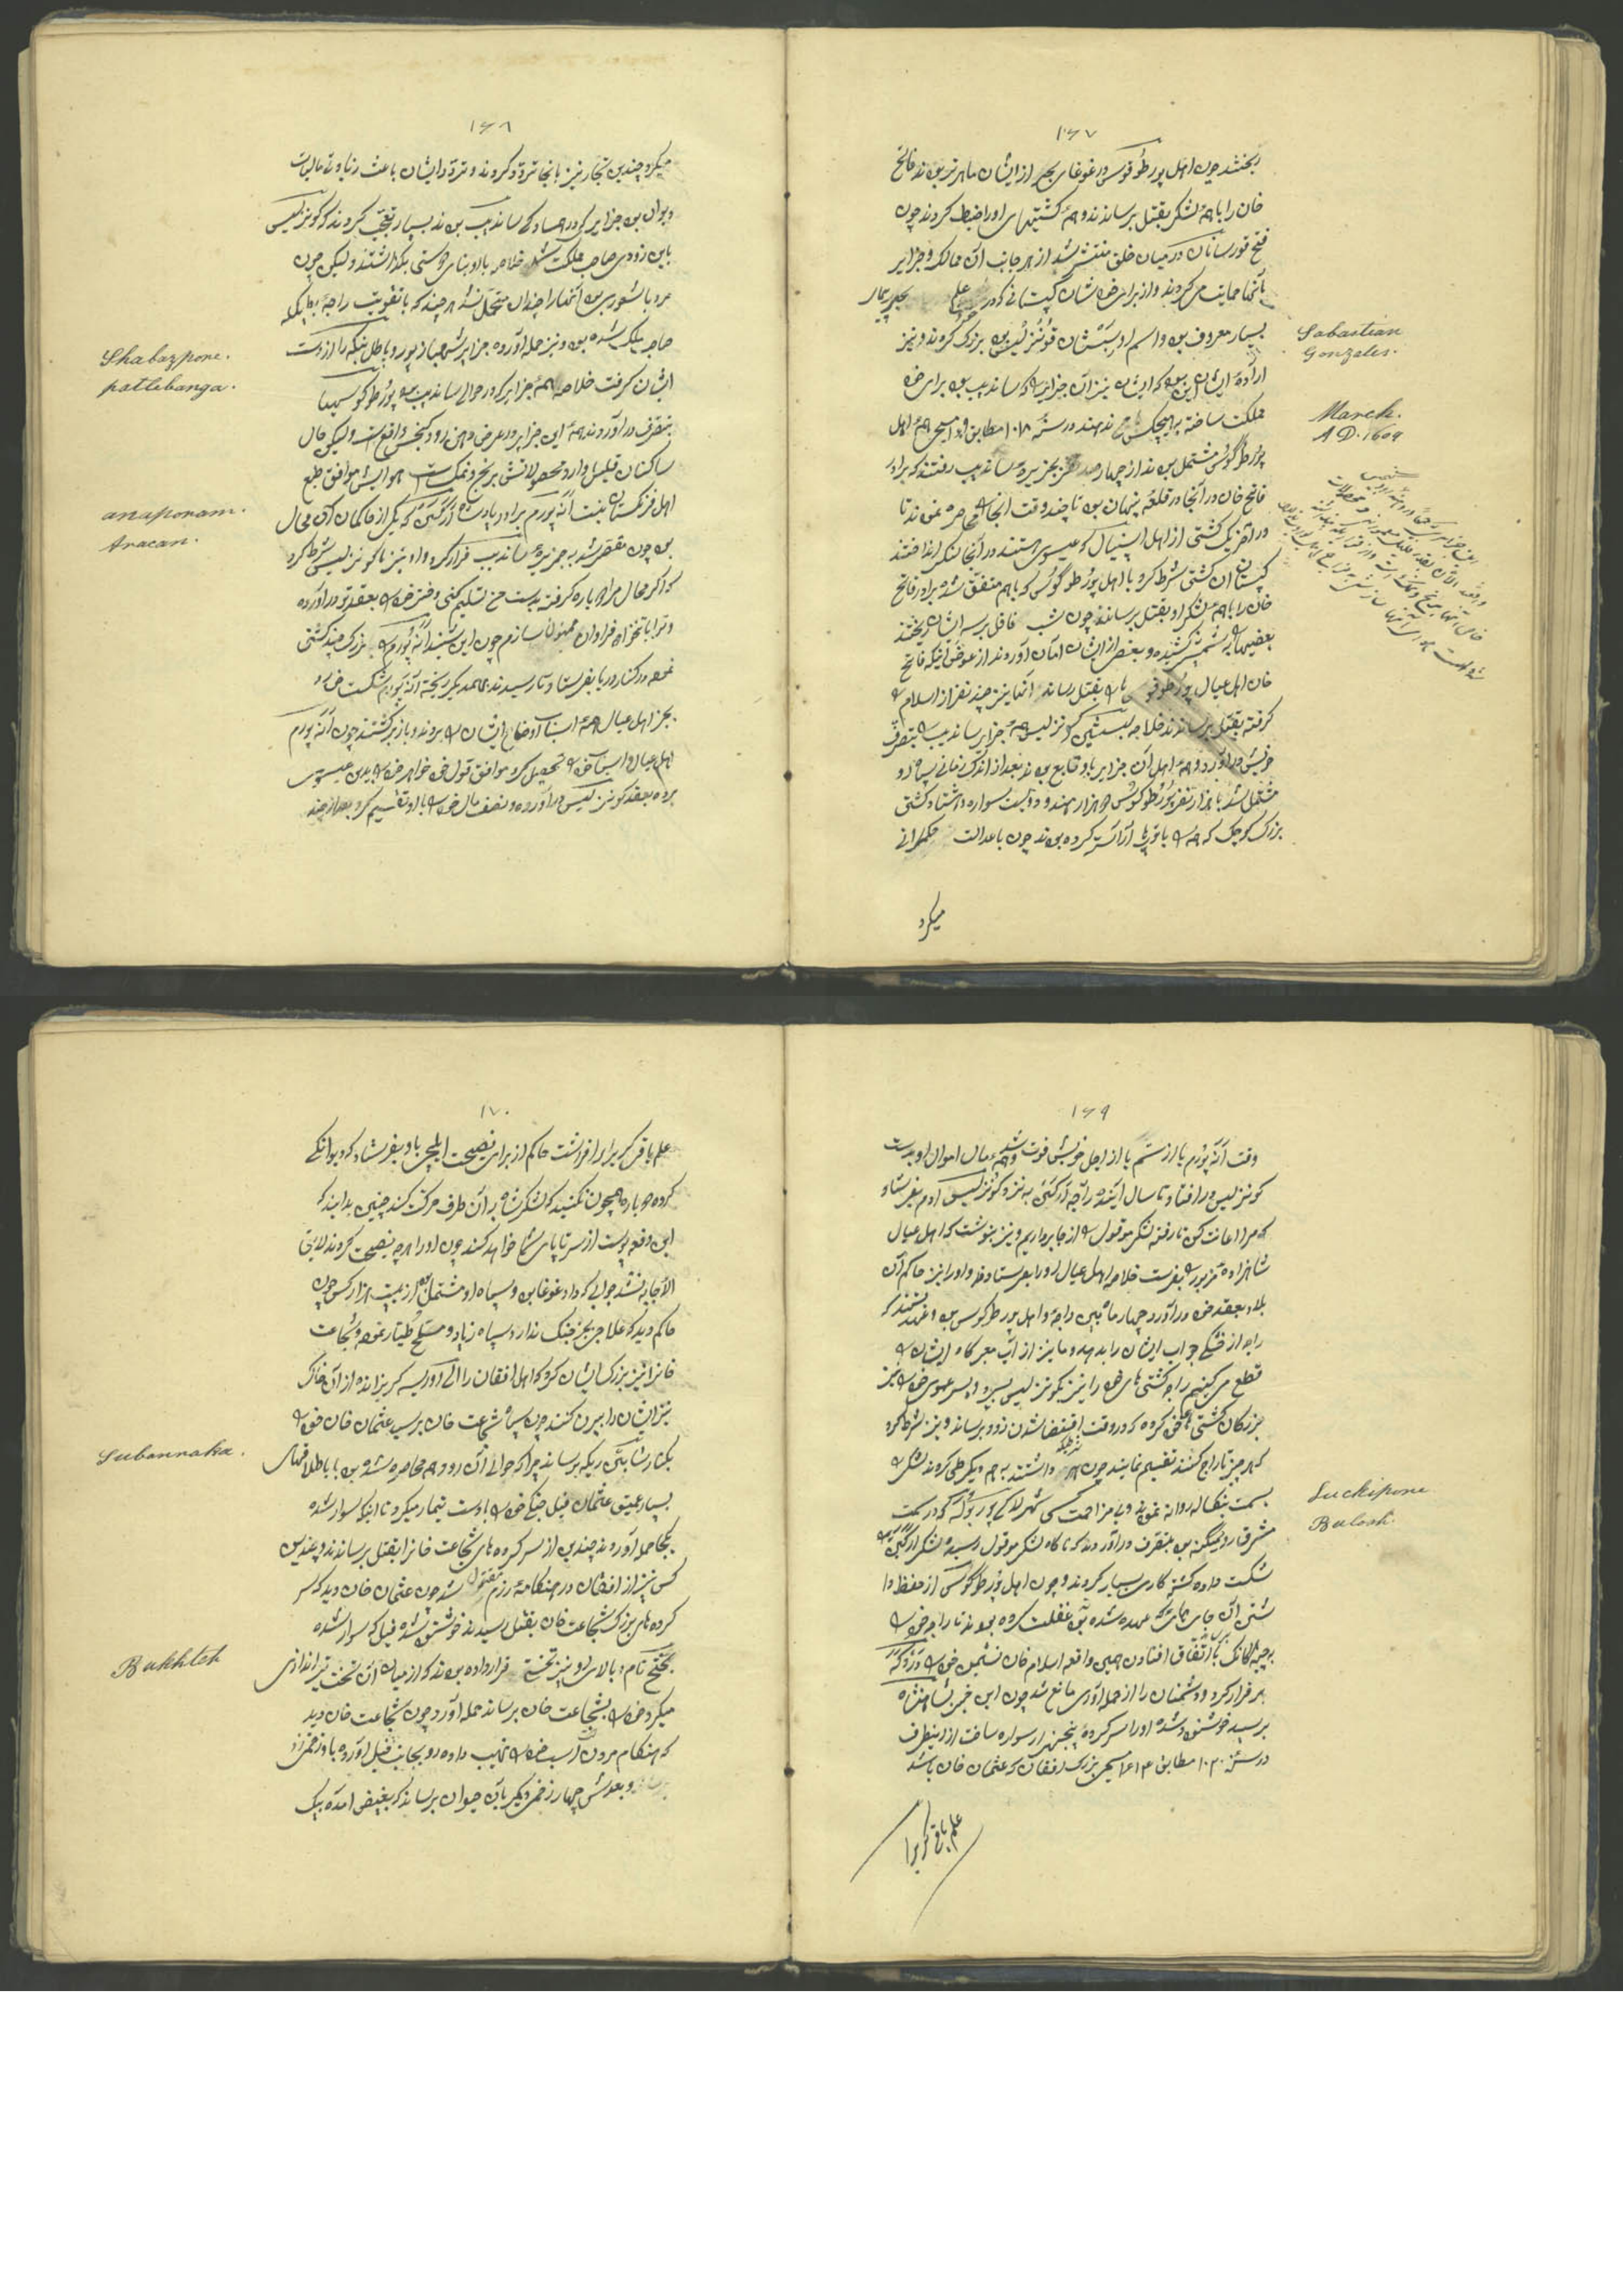 ۱۶۷
ریختند چون اهل پورطوگوس در غوغای بحر از ایشان ماهرتر بودند فاتح
خان را با همهٔ لشکر بقتل برسانند و همهٔ کشتیهای او را ضبط کردند چون
فتح قورسانان در میان خلق منتشر شد از هر جانب آن ممالک و جزایر
بآنها حمایت می کردند و از برای خود نشان کپیتانی که در علم بحر پیمای
بسیار معروف بود و اسم او سبستیان گونزلیس بود بزرگ کردند و نیز
ارادهٔ ایشان این بود که ایشان نیز آن جزایر را که ساندیب بود برای خود
مملکت ساخته بهیچکس باج ندهند در سنهٔ ۱۰۱۸ مطابق مسیحی همهٔ اهل
پورطوگوس مشتمل بودند از چهار صد نفر بجزیرهٔ ساندیب رفتند که برادر
فاتح خان در آنجا در قلعه پنهان بود تا چند وقت آنجا را محاصره نمودند تا
در آخر یک کشتی از اهل اسپنیال که عیسوی هستند در آنجا لنگر انداختند
کپیتان آن کشتی شرط کرد با اهل پورطوگوس که باهم متفق شده برادر فاتح
خان را با همهٔ لشکر او بقتل برسانند چون شب غافل بر سر ایشان ریختند
بعضیها را شمشیر کشیده و بعضی از ایشان امان آوردند از عوض اینکه فاتح
خان اهل عیال پورطوگوس را بقتل رساند آنها نیز چند نفر از اسلام را
گرفته بقتل برسانند خلاصه سبستین گونزلیس همهٔ جزایر ساندیب را بتصرف
خویش در آورد و همهٔ اهل آن جزایر با او تابع بودند بعد از اندک زمانی سپاه او
مشتمل شد با هزار نفر پورطوگوس دو هزار هندو دویست سواره هشتاد کشتی
بزرگ کوچک که همه را با توپها آراسته کرده بودند چون با عدالت حکمرانی
میکرد
Sabastian
Gonzales.
March.
A.D. 1609
۱۶۸
میکرد چندین تجار نیز بآنجا تردد کردند و تردد ایشان باعث زیادتی مالیات
دیوان بود جزایر که در همسادگی ساندیب بودند بسیار تعجب کردند که گونزلیس
باین زودی صاحب مملکت شد خلاصه با او بنای دوستی بگذاشتند ولیکن چون
مرد با شعوری بود آنها را چندان متحمل نشد هر چند که با تقویت راجهٔ بطیکله
صاحب ملک شده بود و نیز حمله آورده جزایر شهباز پور و باطل بنگه را از دست
ایشان گرفت خلاصه همهٔ جزایر که در حوالی ساندیب بود پورطوگوسیها
بتصرف در آوردند همهٔ این جزایر در عرض دهن رود گنجس واقع است ولیکن حال
ساکنان قلیلی دارد محصولاتش برنج و نمک است هوایش موافق طبع
اهل فرنگستان نیست آنه پورم برادر پادشاه آرگنی که یکی از حاکمان آن محال
بود چون مقصر شد به جزیرهٔ ساندیب فرار کرد و او نیز با گونزلیس شرط کرد
که اگر محال مرا دوباره گرفته بدست من تسلیم کنی دختر خود را بعقد تو در آورده
و ترا با تنخواه فراوان ممنون سازم چون این شنید آنه پورم را بزرگ چند کشتی
نموده در کنار دریا بفرستاد تا رسیدند بهمدیگر ریخته آنه پورم شکست خورد
بجز اهل عیال همهٔ اسباب اوضاع ایشان را بردند و باز برگشتند چون آنه پورم
اهل عیال و اسباب خود را تحصیل کرد موافق قول خود خواهر خود را بدین عیسوی
برده بعقد گونزلیس در آورده و نصف مال خود را با او تقسیم کرد بعد از چند
Shabazpone.
pattebanga.
anaponam.
Aracan.
۱۶۹
وقت آنه پورم یا از ستم یا از اجل خویش فوت شد و همهٔ مال اموال او بدست
گونزلیس در افتاد تا سال آینده راجه آرگنی به نزد گونزلیس آدم بفرستاد
که مرا اعانت کن تا رفته لشکر موقول را از جا برداریم و نیز بنوشت که اهل عیال
شاهزادهٔ مزبور را بفرست خلاصه اهل عیال او را بفرستاد و او را نیز حاکم آن
بلاد بعقد خود در آورد چهار ماه بین راجه و اهل پورطوگوس بود و عهد بستند که
راجه از خشکی جواب ایشان را بدهد و ما نیز از آب معرکاه ایشان را
قطع میکنیم راجه کشتی های خود را نیز بگونزلیس بسپرد و پسر عموی خود را نیز
بزرگان کشتی های خود کرده که در وقت انقضا شدن زود برساند و نیز شرط کرد
که هر چیز تاراج کنند تقسیم نمایند چون هر شرطیکه داشتند به هم دیگر طی کردند لشکر را
بسمت بنگاله روانه نمودند و بی مزاحمت کسی شهر لاکی پور و بولکه که در سمت
مشرق رود میگنه بود بتصرف در آوردند که ناگاه لشکر موقول رسیده لشکر آرگنی را
شکست داده کشتهٔ کاری بسیار کردند و چون اهل پورطوگوس از حفظ دا
شتن آن جای های که عهده شده بود غفلت کرده بودند تا راجه خود را
بر چیتاکانک با اتفاق افتادن همین واقعه اسلام خان نشیمن خود را در ڈوگه
بر قرار کرد و دشمنان را از حمله آوری مانع شد چون این خبر بشاهنشاه
برسید خوشنود شده او را سر کردهٔ پنجهزار سواره ساخت از اینطرف
در سنهٔ ۱۰۲۰ مطابق ۱۶۱۲ مسیحی بزرگ افغان که عثمان خان باشد
علم یاقی گریرا
Luckipone
Bulosh.
۱۷۰
علم یاقی گری را برافراشت حاکم از برای نصیحت ایلچی باو بفرستاد که دیوانگی
کرده دوباره همچون نکنید که لشکر شاه بر آن طرف حرکت کند چنین بدانید که
این دفع پوست از سر تا پای شما خواهد کنند چون او را هر چه نصیحت کردند لایق
الاجابه نشد جوابی که داد غوغا بود و سپاه او مشتمل بود از بیست هزار کس چون
حاکم دید که علاجی بجز جنگ ندارد سپاه زیاد و مسلح طیار نموده و شجاعت
خانرا نیز بزرگ ایشان کرد که اهل افغان را الی آوریسه گریزانده از آن خاک
نیز ایشان را بیرون کنند چون سپاه شجاعت خان برسید عثمان خان خود را
بکنار شاپتی ریکه برساند چرا که حوالی آن رود هم محاصره شده بود با باطلاقهای
بسیار عمیق عثمان فیل جنگی خود را با دست تیمار میکرد تا اینکه سوار شده
بیکجا حمله آوردند چندین از سر کرده های شجاعت خانرا بقتل برسانند و چندین
کس نیز از افغان در هنگامهٔ رزم مقتول شد چون عثمان خان دید که سر
کرده های بزرگ شجاعت خان بقتل رسیدند خوشنود شده فیل که سوار شده
بختح نام و بالای او نیز تختی قرار داده بودند که از میان آن تخت تیر اندازی
میکرد خود را بشجاعت خان برساند حمله آورد چون شجاعت خان دید
که هنگام مردن است اسب خود را نهیب داده رو بجانب فیل آورده با او زخمی زد
و بعدش چهار زخمی دیگر بآن حیوان برساند که بغیض آمده بیک
Subannaka.
Bukhteh